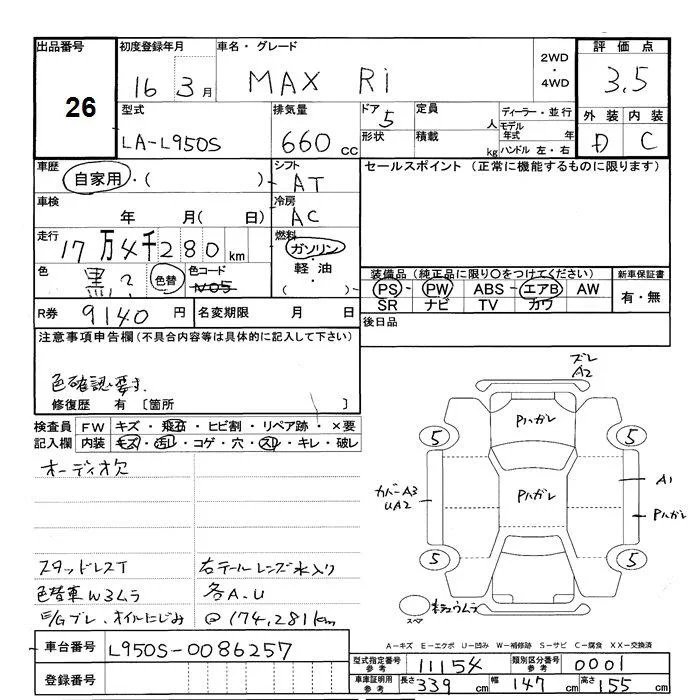 出品番号 初度登録年月 車名・グレード 2WD ・ 4WD 評価点
26 16 3月 MAX Ri 3.5
型式 排気量 ドア 5 定員 人 ディーラー・並行 外装 内装
LA-L950S 660 CC 形状 積載 kg モデル年式 年 D C
ハンドル 左・右
車歴 自家用・( ) シフト AT セールスポイント (正常に機能するものに限ります)
車検 年 月( 日) 冷房 AC
走行 17万4千280km 燃料 ガソリン・軽油・( )
色 黒? 色替 色コード N05
装備品 (純正品に限り○をつけてください) 新車保証書
PS・PW・ABS・エアB・AW 有・無
SR ナビ TV カワ
R券 9140円 名変期限 月 日 後日品
注意事項申告欄(不具合内容等は具体的に記入して下さい)
色確認要す.
修復歴 有 〔箇所 〕
検査員 FW キズ・飛石・ヒビ割・リペア跡・×要
記入欄 内装 キズ・汚レ・コゲ・穴・スレ・キレ・破レ
オーディオ欠
スタッドレスT 右テールレンズ水入り
色替車 W3ムラ 各A.U
E/Gブレ、オイルにじみ @174,281km
ズレ
A2
Pハガレ
5 5
カバーA3
UA2
Pハガレ
A1
Pハガレ
5 5
スペア
車台番号 L950S-0086257
登録番号
A-キズ E-エクボ U-凹み W-補修跡 S-サビ C-腐食 XX-交換済
型式指定番号 参考 11154 類別区分番号 参考 0001
車庫証明用 参考 長さ 339cm 幅 147cm 高さ 155cm